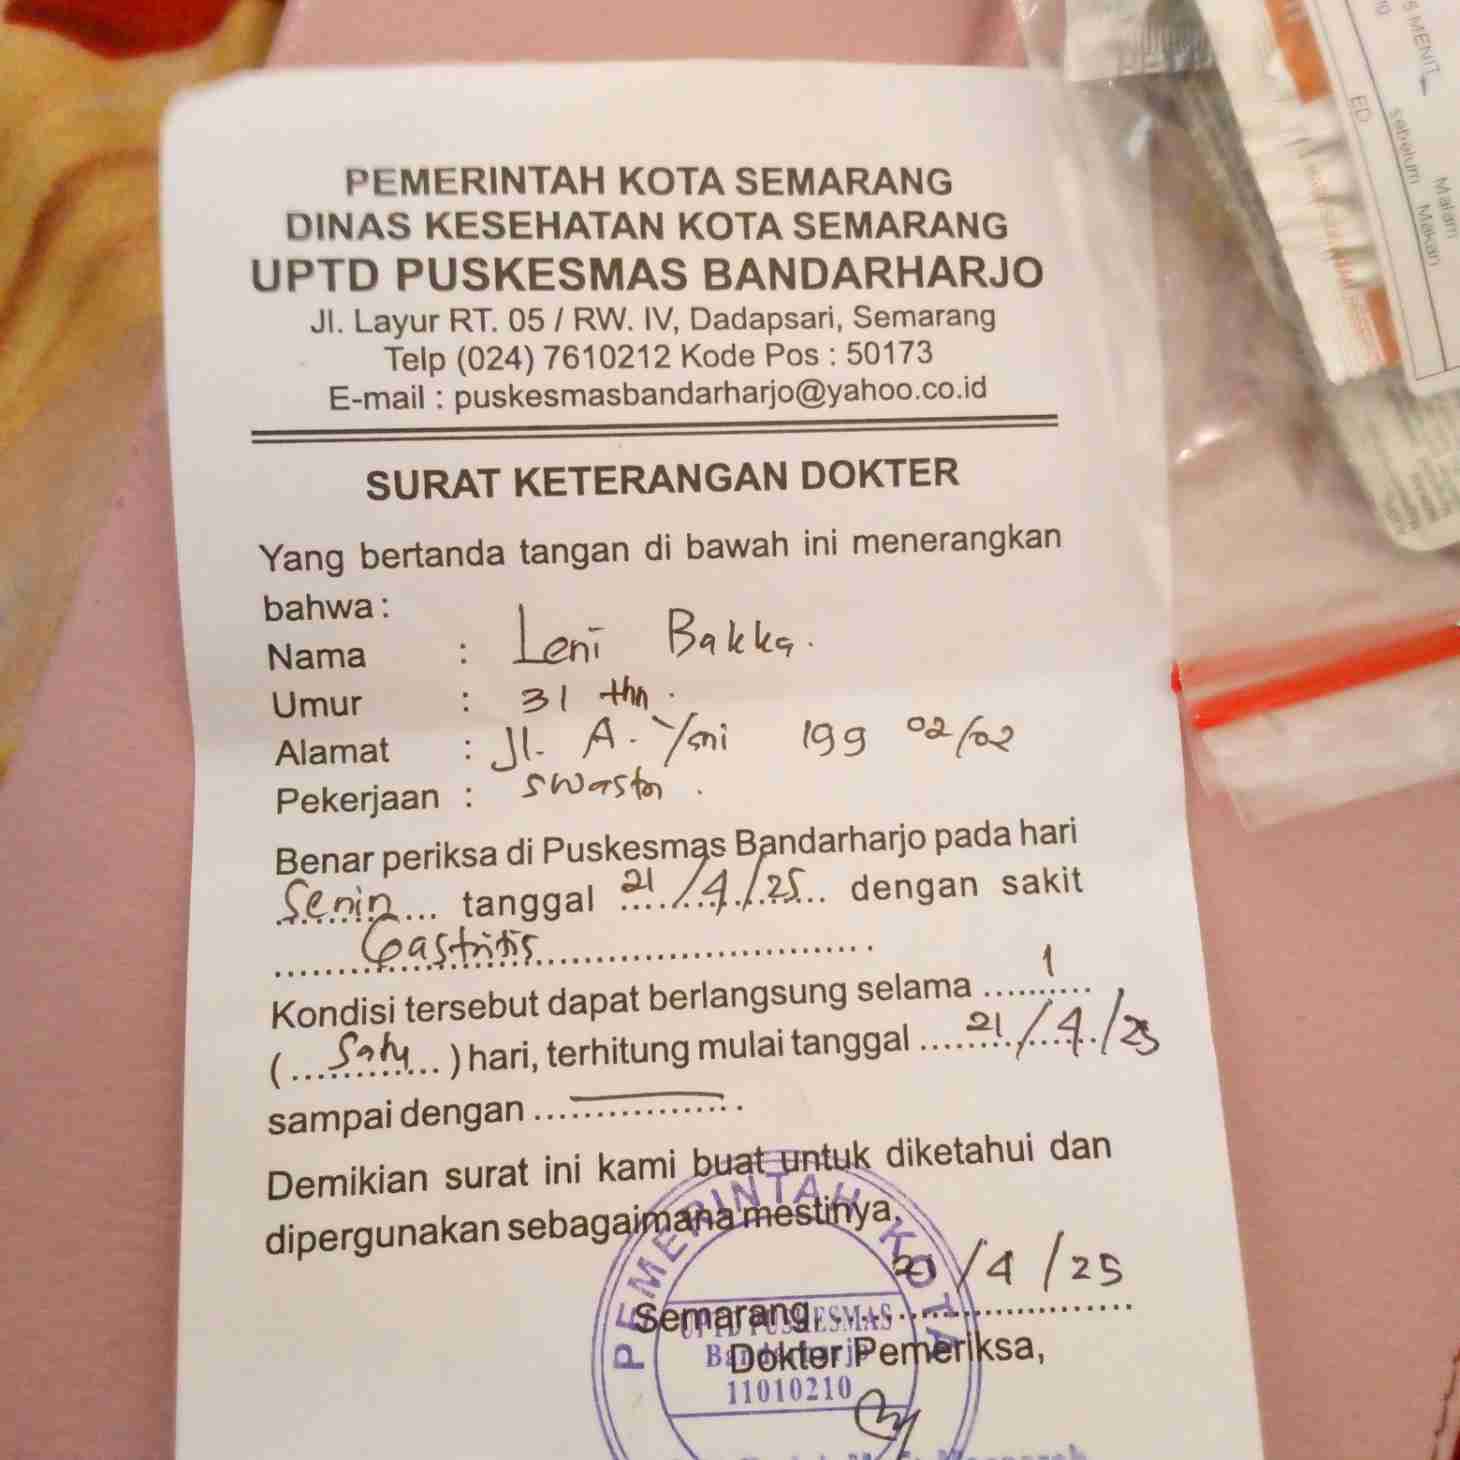 PEMERINTAH KOTA SEMARANG
DINAS KESEHATAN KOTA SEMARANG
UPTD PUSKESMAS BANDARHARJO
Jl. Layur RT. 05 / RW. IV, Dadapsari, Semarang
Telp (024) 7610212 Kode Pos : 50173
E-mail : puskesmasbandarharjo@yahoo.co.id
SURAT KETERANGAN DOKTER
Yang bertanda tangan di bawah ini menerangkan
bahwa :
Nama : Leni Bakka.
Umur : 31 thn.
Alamat : Jl. A. Yani 199 02/02
Pekerjaan : swasta.
Benar periksa di Puskesmas Bandarharjo pada hari
Senin... tanggal 21/4/25 dengan sakit
Gastritis
Kondisi tersebut dapat berlangsung selama 1
(Satu) hari, terhitung mulai tanggal 21/4/25
sampai dengan
Demikian surat ini kami buat untuk diketahui dan
dipergunakan sebagaimana mestinya.
21/4/25
Semarang,
Dokter Pemeriksa,
PEMERINTAH KOTA
UPTD PUSKESMAS
Bandarharjo
11010210
MENIT
ED
sebelum Makan
Malam